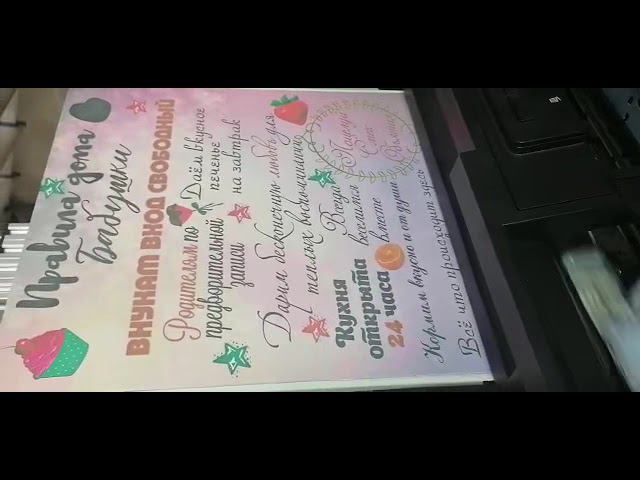 Правила дома
Бабушки
ВНУКАМ ВХОД СВОБОДНЫЙ
Родителям по
предворительной
записи
Даём вкусное
печенье
на завтрак
Дарим бесконечную любовь для
теплых воспоминаний
Кухня
открыта
24 часа
Всегда
веселимся
вместе
Кормим вкусно и от души
Всё что происходит здесь